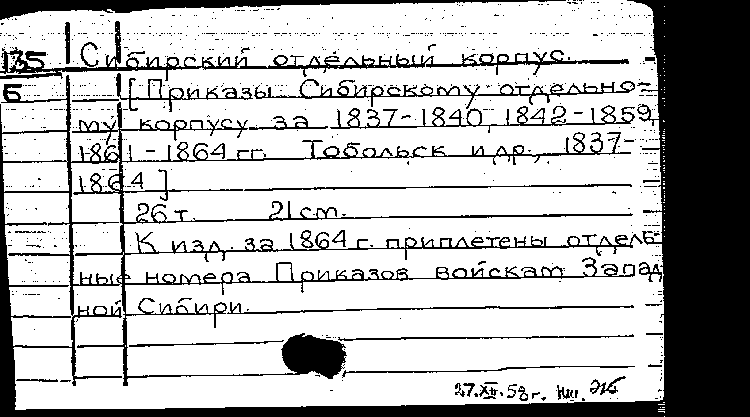 135 Сибирский отдельный корпус.
Б [Приказы Сибирскому отдельно-
му корпусу за 1837-1840, 1842-1859,
1861-1864 гг. Тобольск и др., 1837-
1864].
26 т. 21 см.
К изд. за 1864 г. приплетены отдель-
ные номера Приказов войскам Запад
ной Сибири.
27.XII.58 г.